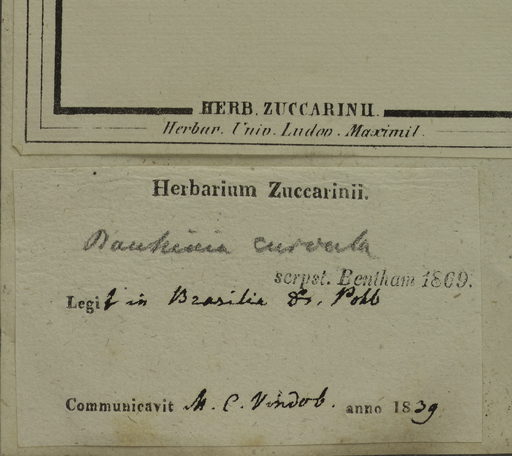 HERB. ZUCCARINII.
Herbar. Univ. Ludov. Maximil.
Herbarium Zuccarinii.
Bauhinia curvula
scrpst. Bentham 1869.
Legit in Brasilia Dr. Pohl
Communicavit M. C. Vindob. anno 1839